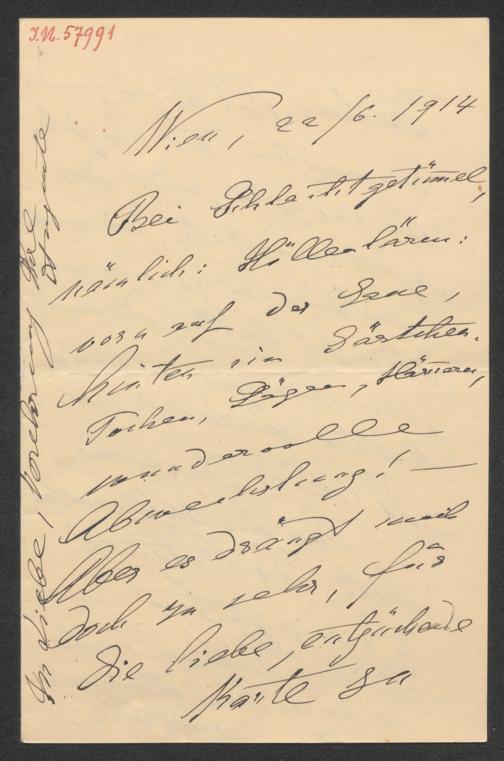 I.N. 57991
Wien, 22/6. 1914
Bei Schlachtgetümmel,
nämlich: Höllenlärm:
vorn auf der Gasse,
hinten im Gärtchen.
Pochen, Sägen, Hämmern,
wundervolle
Abwechslung! —
Aber es drängt mich
doch zu sehr, für
die liebe, entzückende
Karte zu
In Liebe, Verehrung Ihre
Auguste